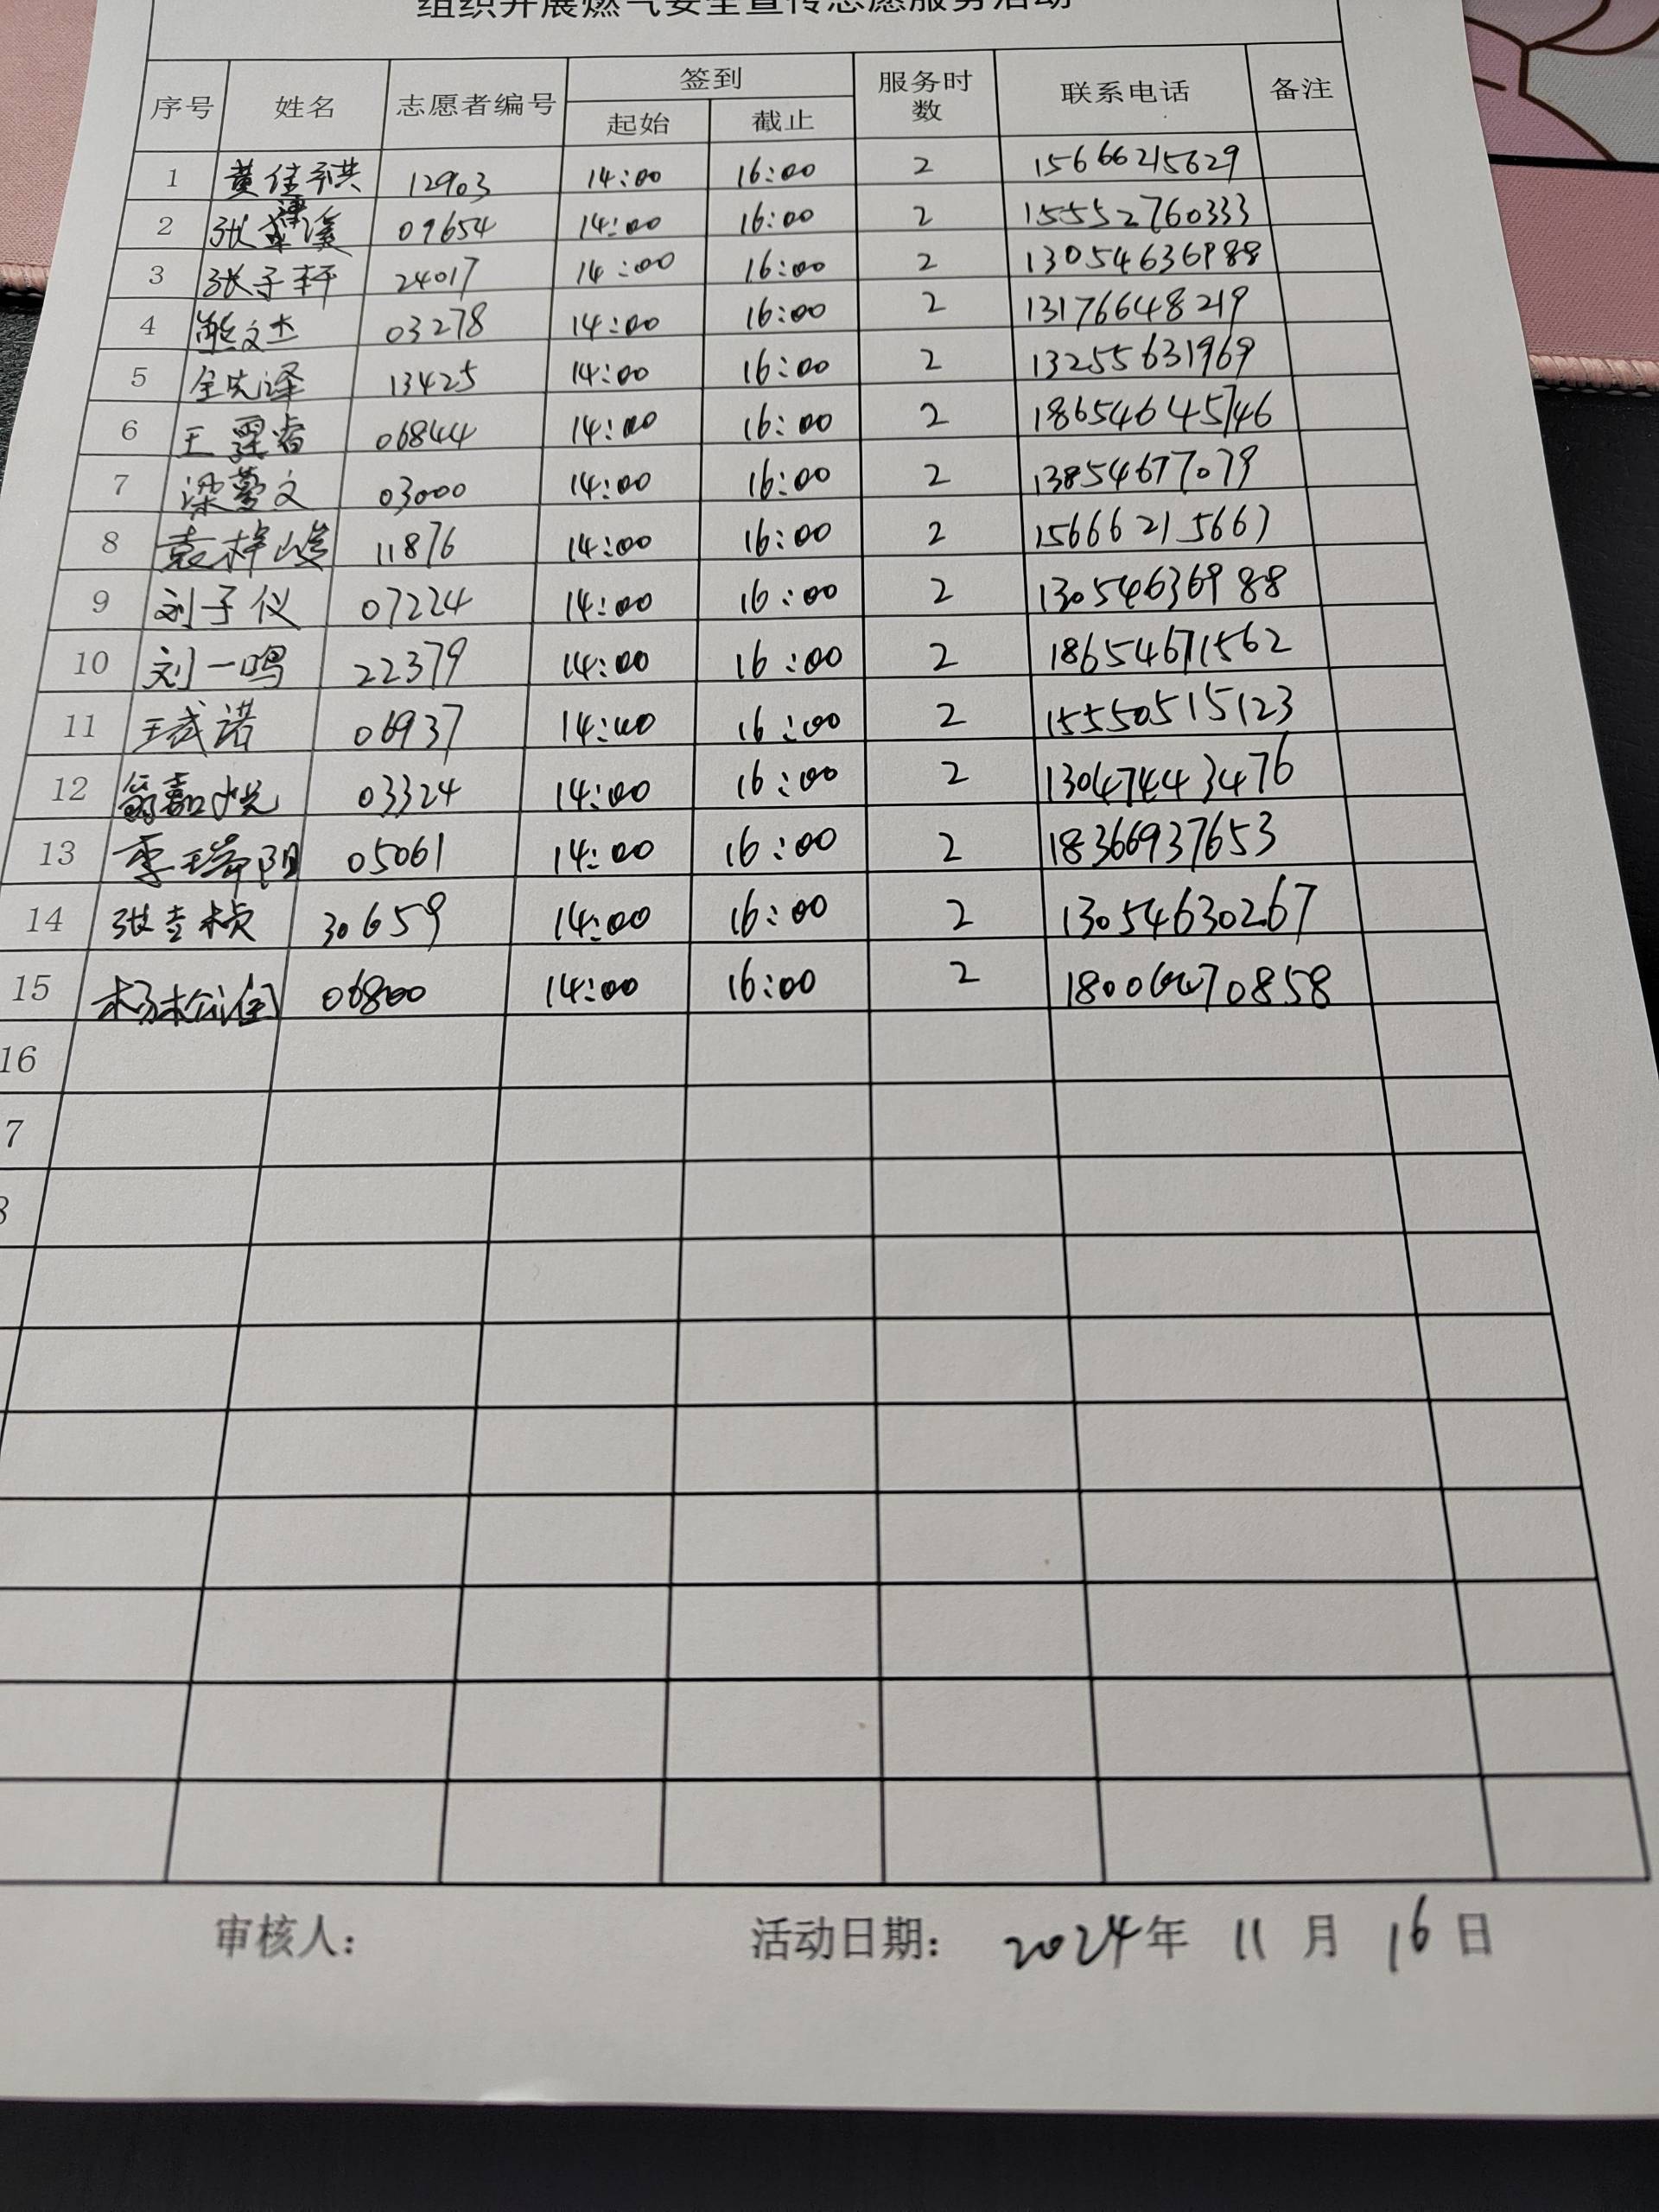 组织开展燃气安全宣传志愿服务活动
序号 姓名 志愿者编号 签到 服务时数 联系电话 备注
起始 截止
1 黄佳祺 12903 14:00 16:00 2 15666215629
2 张溪 09654 14:00 16:00 2 15552760333
3 张子轩 24017 14:00 16:00 2 13054636988
4 熊文杰 03278 14:00 16:00 2 13176648219
5 全先泽 13425 14:00 16:00 2 13255631969
6 王霏睿 06844 14:00 16:00 2 18654645746
7 梁蔓文 03000 14:00 16:00 2 13854677079
8 袁梓峻 11876 14:00 16:00 2 15666215667
9 刘子仪 07224 14:00 16:00 2 13054636988
10 刘一鸣 22379 14:00 16:00 2 18654671562
11 王斌诺 06937 14:00 16:00 2 15550515123
12 翁嘉悦 03324 14:00 16:00 2 13047443476
13 季瑞阳 05061 14:00 16:00 2 18366937653
14 张桢 30659 14:00 16:00 2 13054630267
15 杨松润 06800 14:00 16:00 2 0858
16
7
8
审核人: 活动日期: 2024年 11 月 16 日